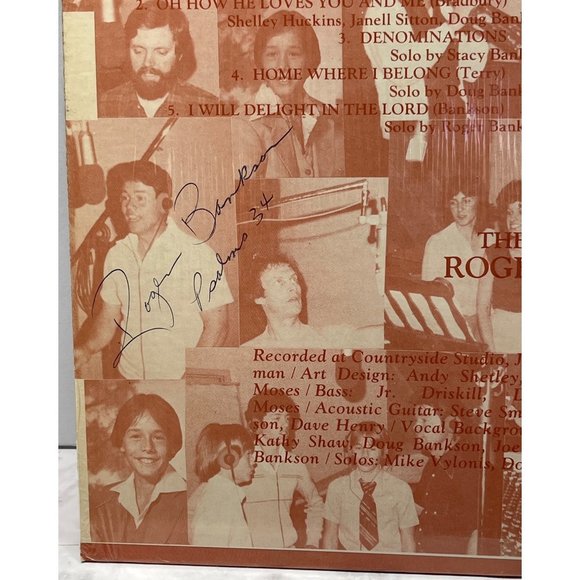 2. OH HOW HE LOVES YOU AND ME (Bradbury)
Shelley Huckins, Janell Sitton, Doug Bank
3. DENOMINATIONS
Solo by Stacy Bank
4. HOME WHERE I BELONG (Terry)
Solo by Doug Bank
5. I WILL DELIGHT IN THE LORD (Bankson)
Solo by Roger Bank
Roger Bankson
Psalms 34
THE
ROGE
Recorded at Countryside Studio, J
man / Art Design: Andy Shetley,
Moses / Bass: Jr. Driskill, L
Moses / Acoustic Guitar: Steve Sm
son, Dave Henry / Vocal Backgro
Kathy Shaw, Doug Bankson, Joe
Bankson / Solos: Mike Vylonis, Do